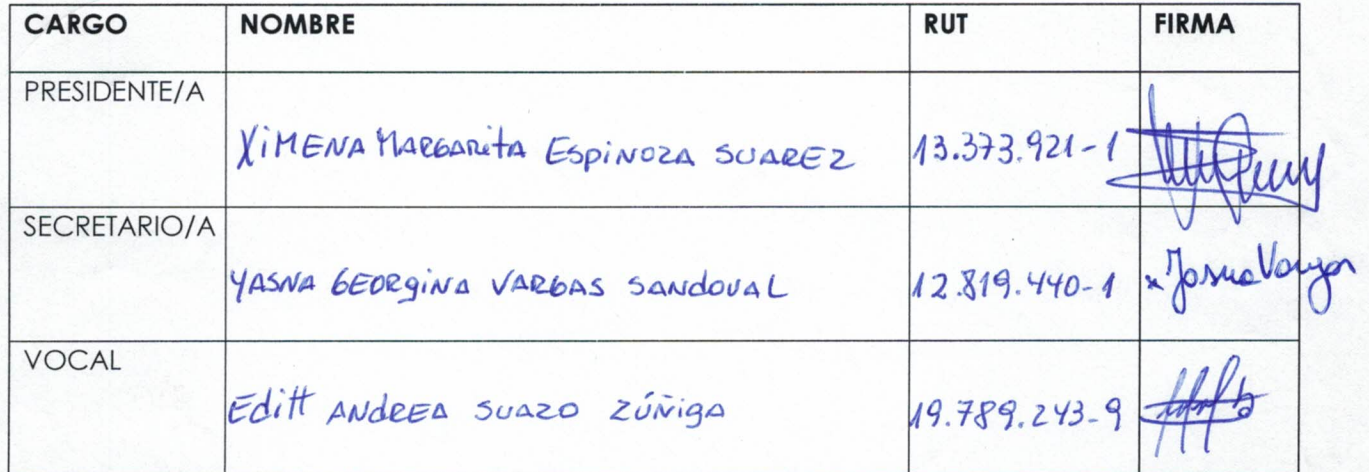 CARGO NOMBRE RUT FIRMA
PRESIDENTE/A
XIMENA MARGARITA ESPINOZA SUAREZ 13.373.921-1
SECRETARIO/A
YASNA GEORGINA VARGAS SANDOVAL 12.819.440-1 x Yasna Vargas
VOCAL
Editt ANDREA SUAZO ZÚÑIGA 19.789.243-9